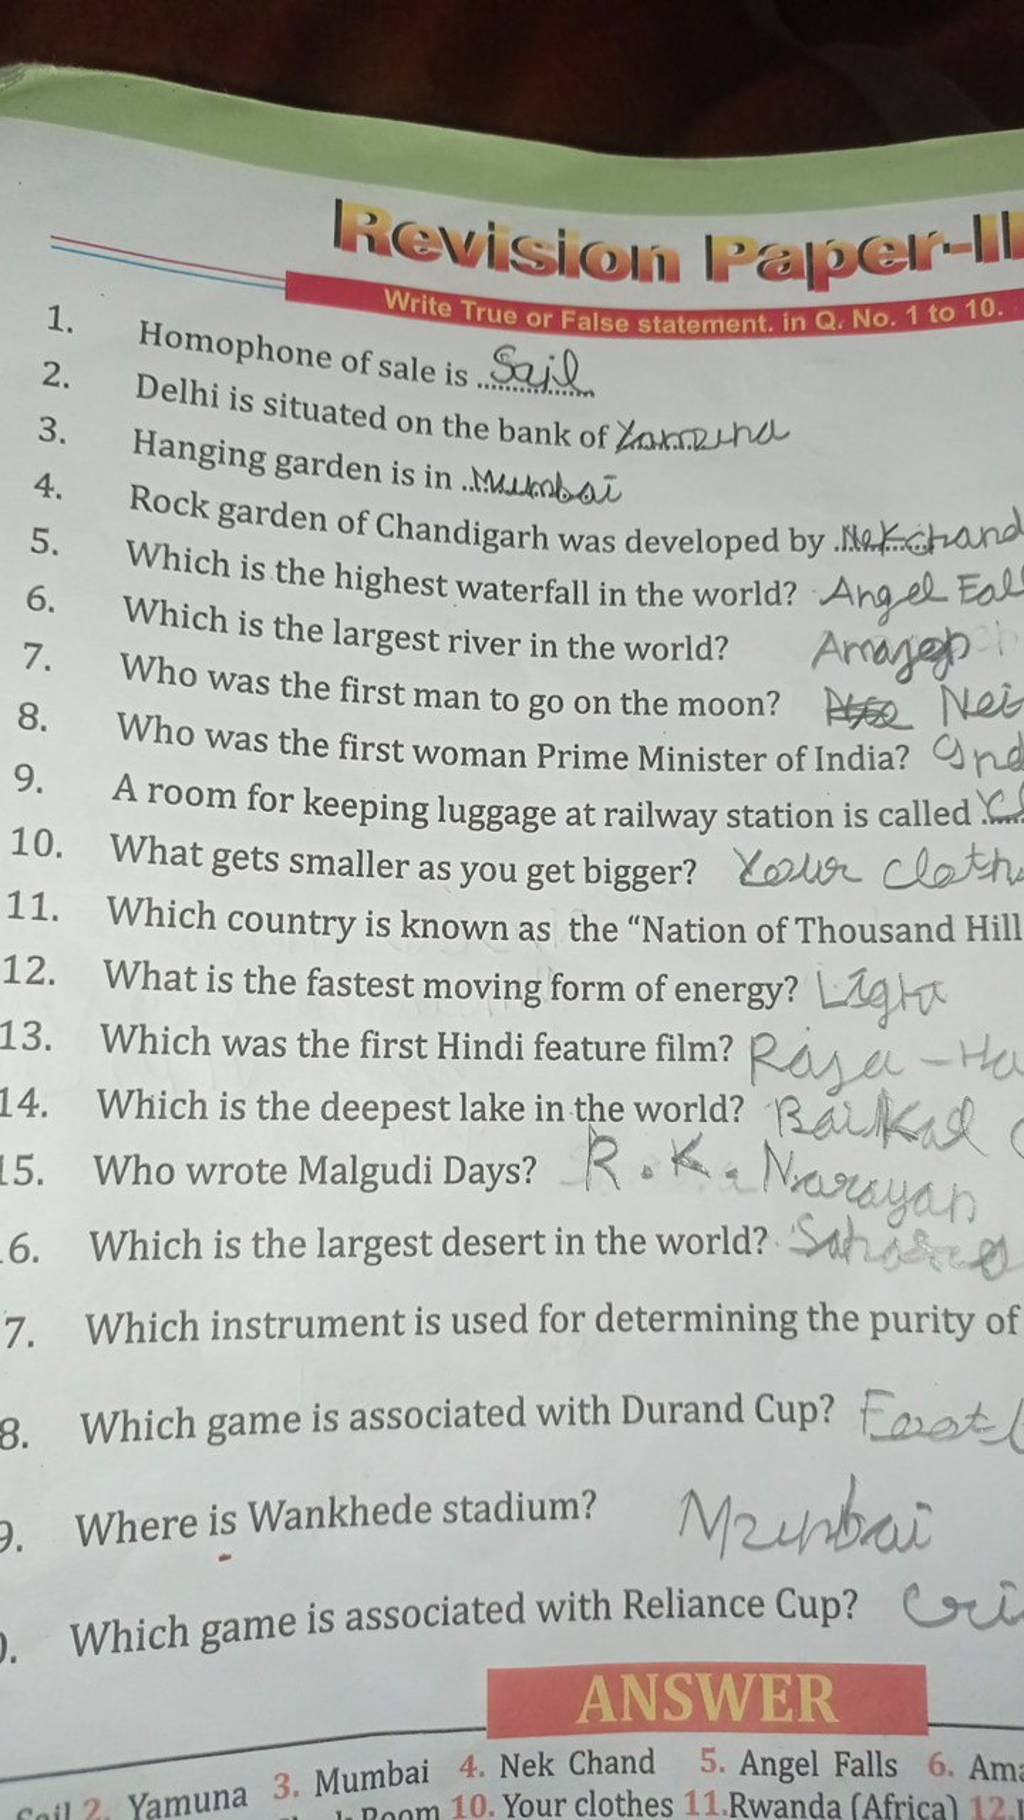 Revision Paper-II
Write True or False statement. in Q. No. 1 to 10.
1. Homophone of sale is Sail
2. Delhi is situated on the bank of Yamuna
3. Hanging garden is in Mumbai
4. Rock garden of Chandigarh was developed by Nek chand
5. Which is the highest waterfall in the world? Angel Fall
6. Which is the largest river in the world?
7. Who was the first man to go on the moon? Nei
8. Who was the first woman Prime Minister of India? Ind
9. A room for keeping luggage at railway station is called
10. What gets smaller as you get bigger? Your cloth
11. Which country is known as the “Nation of Thousand Hill
12. What is the fastest moving form of energy? Light
13. Which was the first Hindi feature film? Raja - Ha
14. Which is the deepest lake in the world? Baikal
15. Who wrote Malgudi Days? R. K. Narayan
6. Which is the largest desert in the world?
7. Which instrument is used for determining the purity of
8. Which game is associated with Durand Cup? Footb
9. Where is Wankhede stadium? Mumbai
0. Which game is associated with Reliance Cup? Cri
ANSWER
Sail 2. Yamuna 3. Mumbai 4. Nek Chand 5. Angel Falls 6. Ama
Room 10. Your clothes 11.Rwanda (Africa) 12.